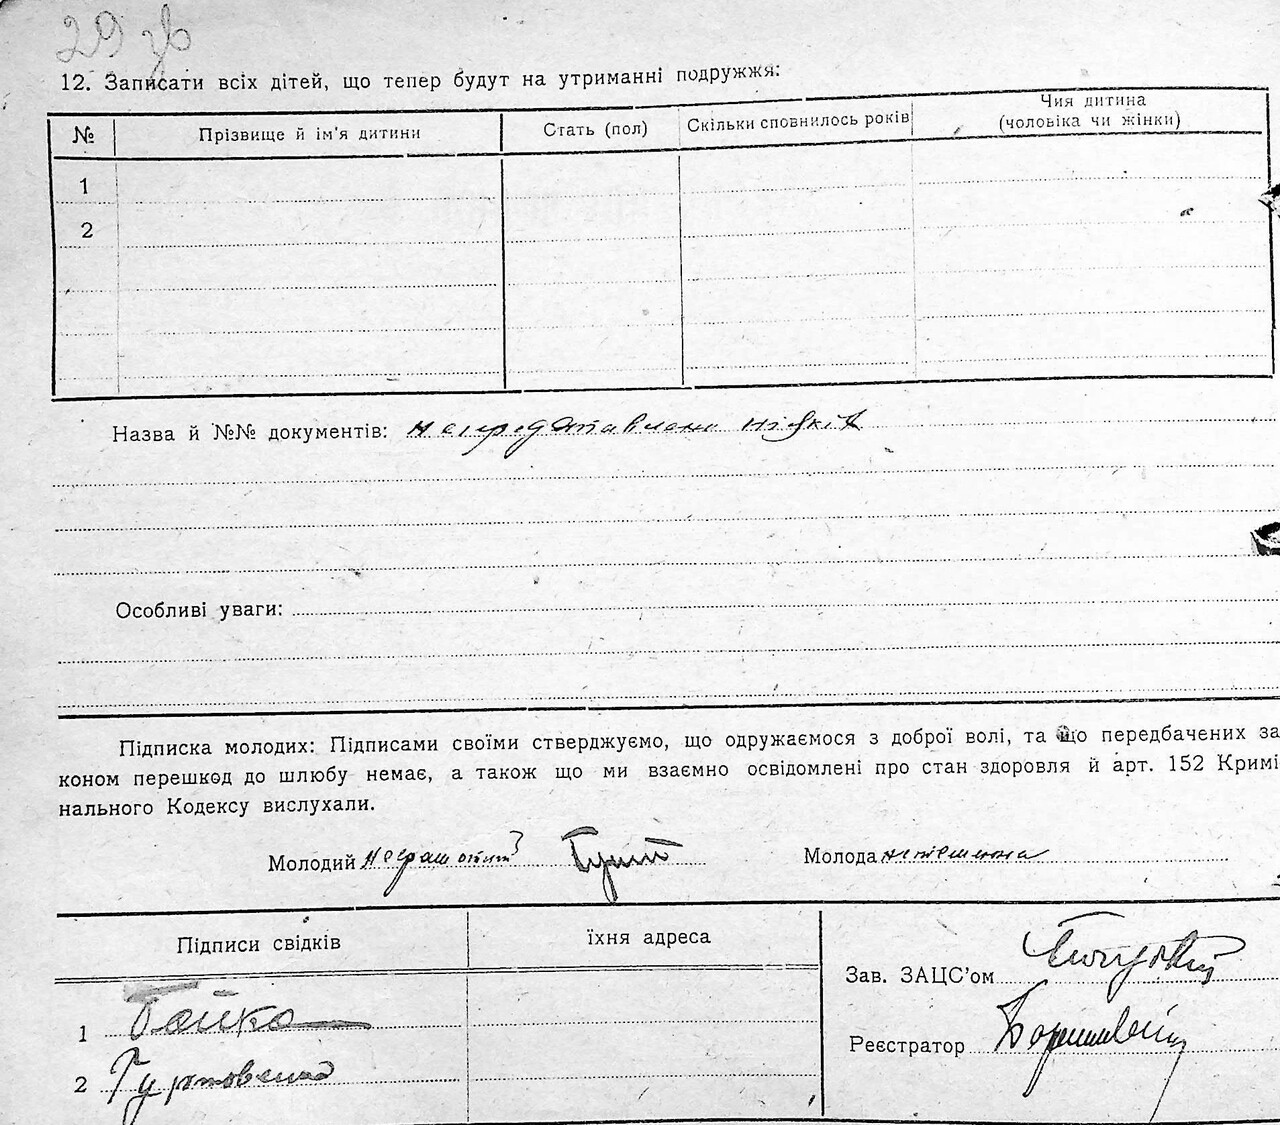 29 зв
12. Записати всіх дітей, що тепер будут на утриманні подружжя:
№ Прізвище й ім'я дитини Стать (пол) Скільки сповнилось років Чия дитина (чоловіка чи жінки)
1
2
Назва й №№ документів: непредставлено ніяких
Особливі уваги:
Підписка молодих: Підписами своїми стверджуємо, що одружаємося з доброї волі, та що передбачених за
коном перешкод до шлюбу немає, а також що ми взаємно освідомлені про стан здоровля й арт. 152 Кримі
нального Кодексу вислухали.
Молодий Молода
Підписи свідків їхня адреса
Зав. ЗАЦС'ом
1 Бойко
Реєстратор
2